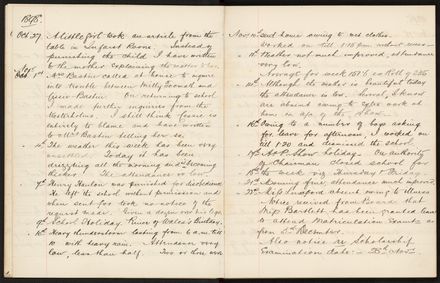 1898
Oct 27 A little girl took an article from the
table in Infant Room. Instead of
punishing the child I have written
to the mother explaining the matter
Nov 1st Mrs called at house to inquire
into trouble between Milly and
On returning to school
I made further inquiries from the
I still think Jessie is
entirely to blame and have written
to Mrs telling her so.
4th The weather this week has been very
unsettled. Today it has been
drizzling all the morning
The attendance is low.
7th Henry was punished for disobedience
He left the school without permission and
when sent for took no notice of the
request made. Given a
9th School Holiday. Prince of Wales's Birthday.
10th Heavy thunderstorm lasting from 6 a.m. till
10 with heavy rain. Attendance very
low, less than half. Two or three were
Nov 10th sent home owing to wet clothes.
Worked on till 1.15 p.m. without recess
11th Weather not much improved, attendance
very low.
Average for week
14th Although the weather is beautiful today
the attendance is low. Several, I know
are absent owing to extra work at
home in of the Show.
16th Owing to a number of boys asking
for leave for afternoon, I worked on
till 1.30 and dismissed the school.
17th A. & P. Show holiday. On authority
of Chairman closed school for
18th the week viz. Thursday & Friday
21st Morning fine attendance much improved.
22nd Miss absent owing to illness
Notice received from Board that
Miss Bartlett has been granted leave
to attend Matriculation Exam
on 5th December.
Also notice re Scholarship
Examination date